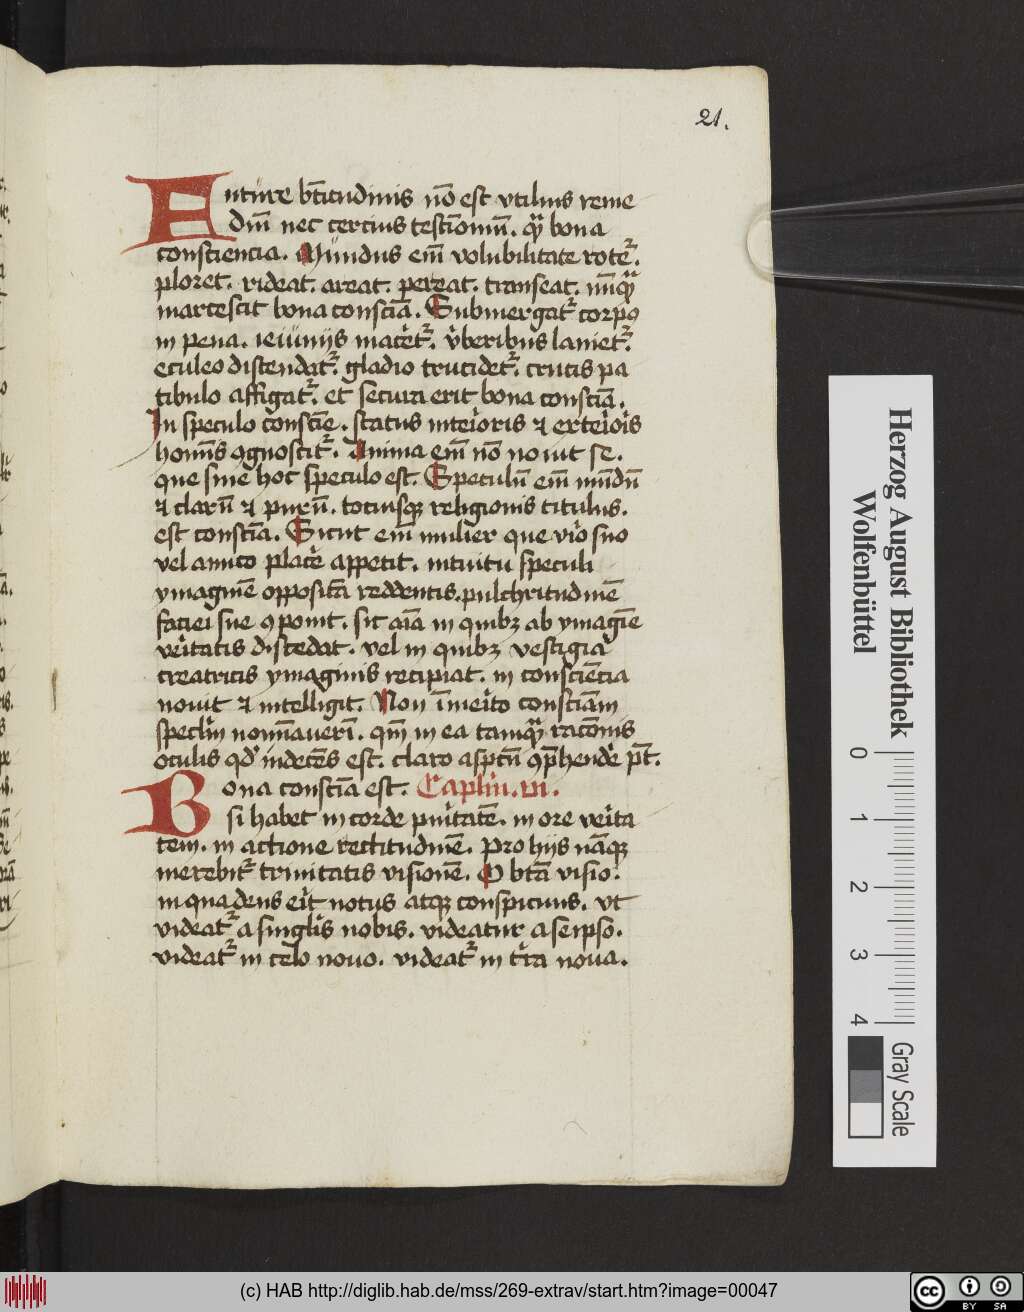 21.
Enture bt̄itudinis nō est vtilius reme
diū nec cercius testīoniū. qͣ bona
consciencia. Mundus em̄ volubilitate rotet᷑.
ploret. rideat. areat. pereat. transeat. nūqͣ
martescit bona consciā. Submergat᷑ corpꝰ
in pena. ieiunijs macēt᷑. v̓beribus laniet᷑.
eculeo distendat᷑. gladio trucidet᷑. crucis pa
tibulo affigat᷑. et secura erit bona consciā.
In speculo conscīe. status int̓ioris ⁊ ext̓iorꝭ
hoīnis ꝯgnoscit᷑. Anima em̄ nō nouit se.
que sine hoc speculo est. Speculū em̄ mūdū
⁊ clarū ⁊ purū. totiusqꝫ religionis titulus.
est consciā. Sicut em̄ mulier que viro suo
vel amico placēe appetit. intuitu speculi
ymaginē oppositā reddentis. pulchritudinē
faciei sue ꝯponit. sic aīa in quibꝫ ab ymagīe
v̓itatis discedat. vel in quibꝫ vestigia
creatricis ymaginis recipiat. in consciēcia
nouit ⁊ intelligit. Non īmerito consciām
speclm̄ nomīauerī. qm̄ in ea tamqͣ racōnis
oculis qd̓ indecēs est. claro asp̄ctū ꝯp̄hendē̓ pt̄.
Bona consciā est. Caplm̄. vi.
si habet in corde puritatē. in ore v̓ita
tem. in actione rectitudinē. pro hijs nāqꝫ
merebit᷑ trinitatis visionē. O btā visio.
in qua deus erit notus atqꝫ conspicuus. vt
videat᷑ a singlis nobis. videatur a seipso.
videat᷑ in celo nouo. videat᷑ in t̓ra noua.
Herzog August Bibliothek
Wolfenbüttel
0 1 2 3 4
Gray Scale
(c) HAB http://diglib.hab.de/mss/269-extrav/start.htm?image=00047
cc BY SA